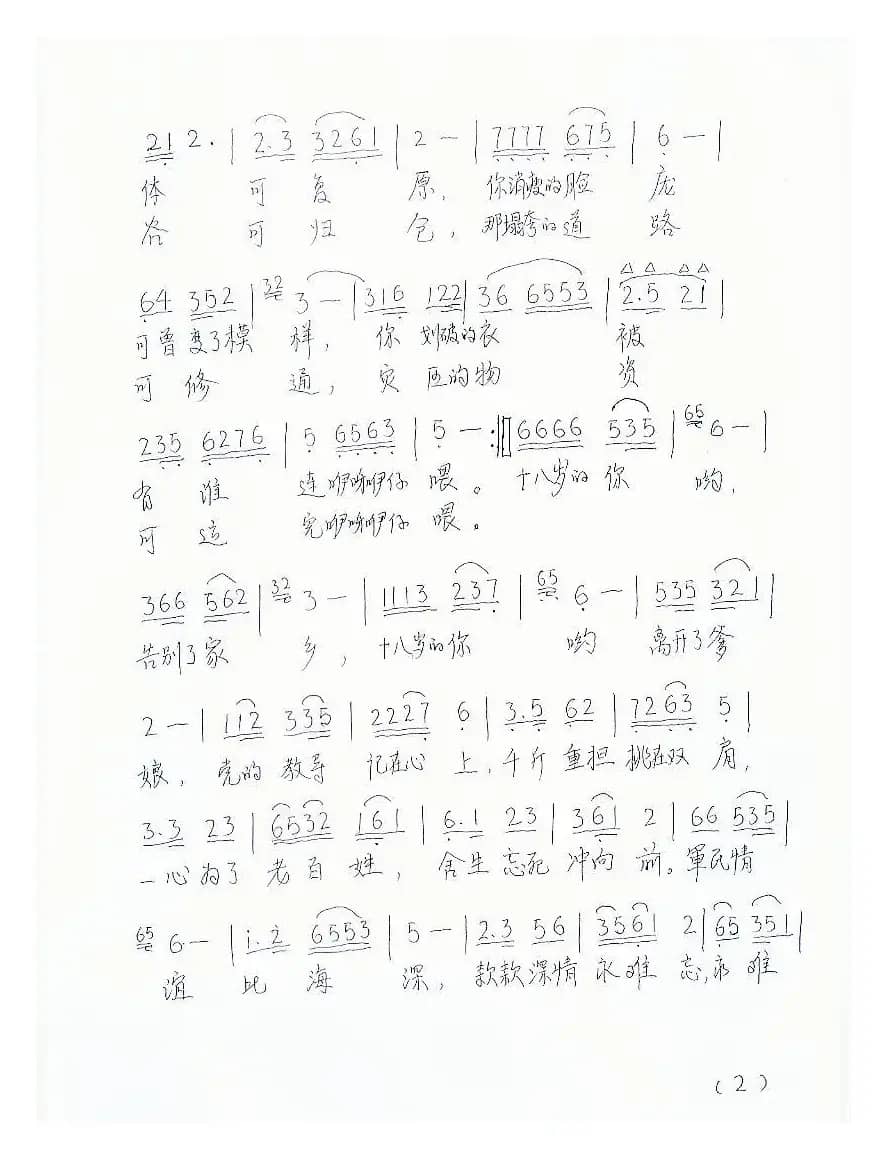 21 2. | 2.3 3261 | 2 — | 7777 675 | 6 — |
体 可 复 原, 你消瘦的脸 庞
谷 可 归 仓, 那塌垮的道 路
64 352 | 32 3 — | 316 122 | 36 6553 | 2.5 21 |
可曾变了模 样, 你 划破的衣 被
可 修 通, 灾 区的物 资
235 6276 | 5 6563 | 5 — :‖ 6666 535 | 65 6 — |
有 谁 连咿呀咿仔 喂。 十八岁的 你 哟,
可 运 完咿呀咿仔 喂。
366 562 | 32 3 — | 1113 237 | 65 6 — | 535 321 |
告别了家 乡, 十八岁的你 哟 离开了爹
2 — | 112 335 | 2227 6 | 3.5 62 | 7263 5 |
娘, 党的 教导 记在心 上, 千斤 重担 挑在双 肩,
3.3 23 | 6532 161 | 6.1 23 | 361 2 | 66 535 |
一心为了 老百 姓, 舍生忘死 冲向 前。 軍民情
65 6 — | i.2 6553 | 5 — | 2.3 56 | 3561 2 | 65 351 |
谊 比 海 深, 款款深情 永难 忘, 永 难
(2)